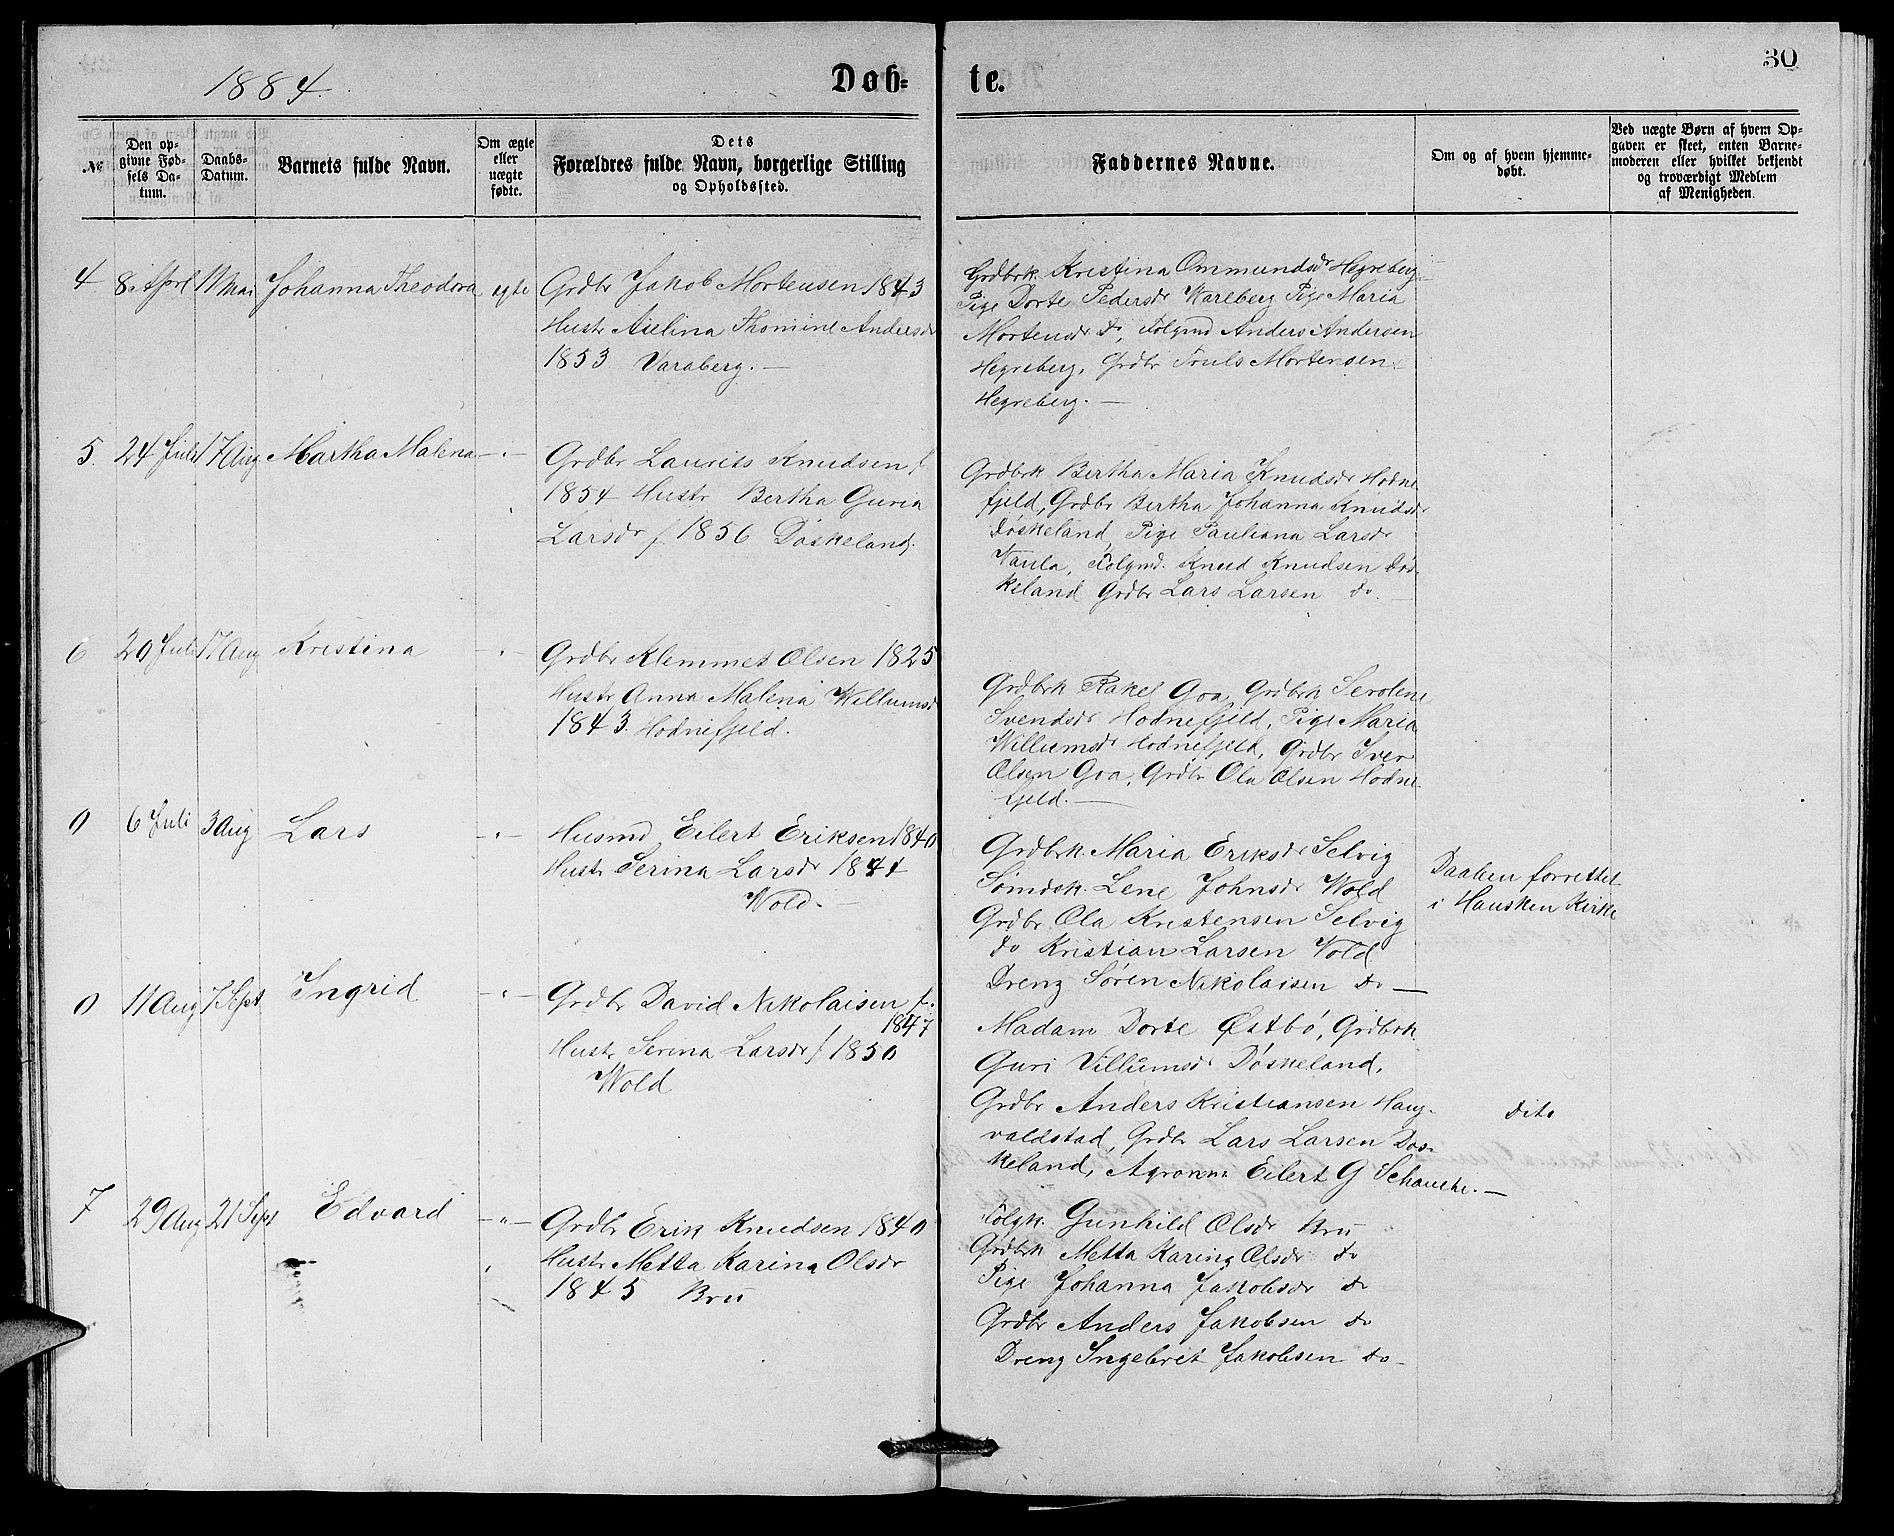 30
1884.
Døb-
te.
№
Den op-
givne Fød-
sels Da-
tum.
Daabs-
Datum.
Barnets fulde Navn.
Om ægte
eller
uægte
fødte.
Dets
Forældres fulde Navn, borgerlige Stilling
og Opholdssted.
Faddernes Navne.
Om og af hvem hjemme-
døbt.
Ved uægte Børn af hvem Op-
gaven er skeet, enten Barne-
moderen eller hvilket bekjendt
og troværdigt Medlem
af Menigheden.
4 8 April 11 Mai Johanna Theodora egte
Grdbr Jakob Mortensen 1843
Hustr Aselina Thomine Andersdr
1853 Varaberg. —
Grdbrk. Kristina Ommundsdr Hegreberg
Pige Dorte Pedersdr Wareberg Pige Maria
Mortensdr do, Følgmd Anders Andersen
Hegreberg, Grdbr Truls Mortensen
Hegreberg. —
5. 24 Juli 17 Aug Martha Malena -"-
Grdbr Laurits Knudsen f
1854 Hustr Bertha Guria
Larsdr f. 1856 Døskeland.
Grdbrk Bertha Maria Knudsdr Hodne
fjeld, Grdbr Bertha Johanna Knudsdr
Døskeland, Pige Pauliana Larsdr
Vaula, Følgmd. Knud Knudsen Døs-
keland Grdbr Lars Larsen do. —
6 20 Juli 17 Aug Kristina -"-
Grdbr Klemmet Olsen 1825
Hustr Anna Malena Willumsdr
1843. Hodnefjeld.
Grdbrk Rakel Goa, Grdbrk Serolene
Svendsdr Hodnefjeld, Pige Maria
Willumsdr Hodnefjeld, Grdbr Iver
Olsen Goa, Grdbr Ola Olsen Hodne
fjeld. —
0 6 Juli 3 Aug Lars -"-
Husmd Eilert Eriksen 1840
Hustr Serina Larsdr 1844
Wold. —
Grdbrk. Maria Eriksdr Selvig
Sømdsk. Lene Johnsdr Wold
Grdbr Ola Kristensen Selvig
do Kristian Larsen Vold
Dreng Søren Nikolaisen do —
Daaben forrettet
i Hausken Kirke
0 11 Aug 7 Sept. Ingrid -"-
Grdbr David Nikolaisen f.
1847
Hustr Serina Larsdr f 1850
Wold
Madam Dorte Østbø, Grdbrk
Guri Villumsdr Døskeland,
Grdbr Anders Kristiansen Haug-
valdstad, Grdbr Lars Larsen Døs-
keland, Agronom Eilert G Schanche. —
dito
7 29 Aug 21 Sept Edvard -"-
Grdbr Erik Knudsen 1840
Hustr Metta Karina Olsdr
1845 Bru
Følgk. Gunhild Olsdr Bru
Grdbrk Metta Karina Olsdr do
Pige Johanna Jakobsdr do
Grdbr Anders Jakobsen do
Dreng Ingebret Jakobsen do-